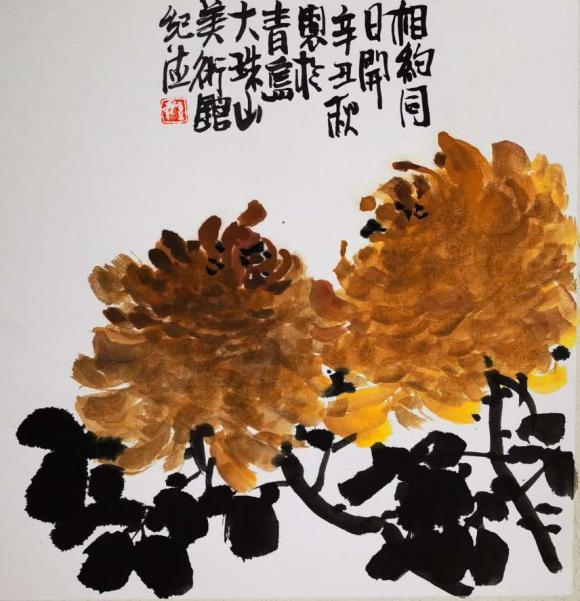 相約同
日開
辛丑秋
製於
青島
大珠山
美術館
纪波